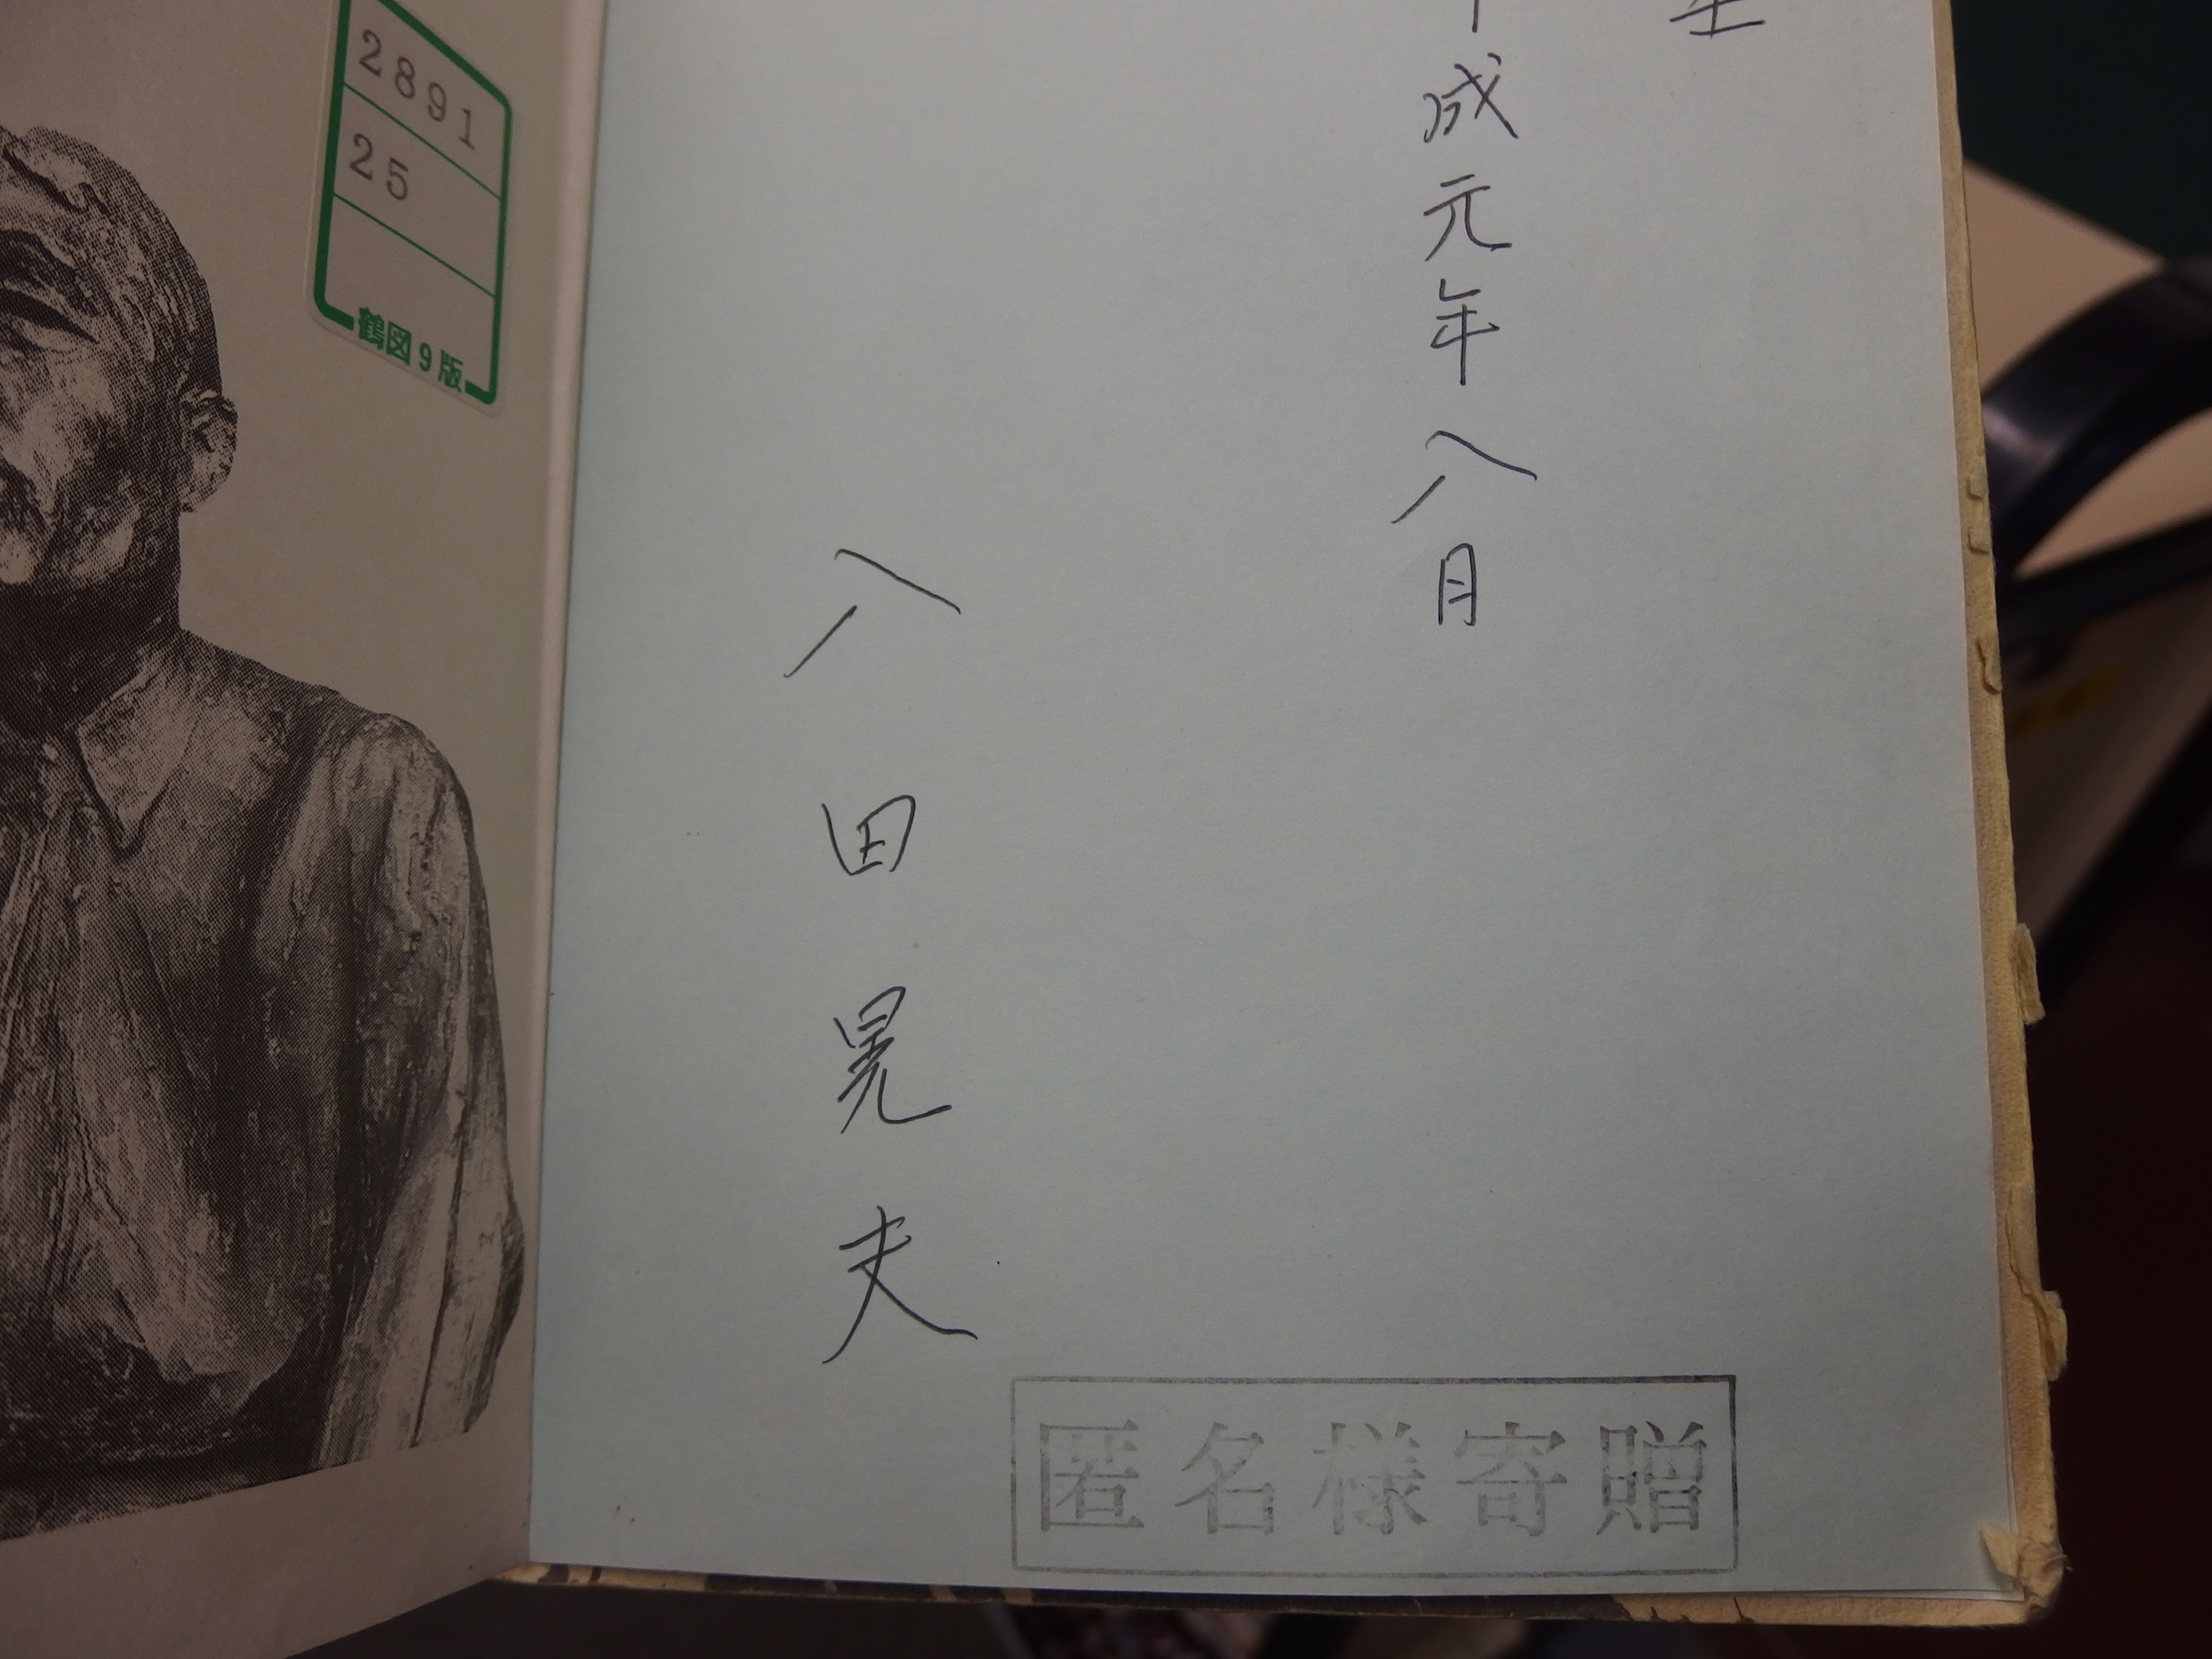 2891
25
鶴図9版
成元年八月
八田晃夫
匿名様寄贈